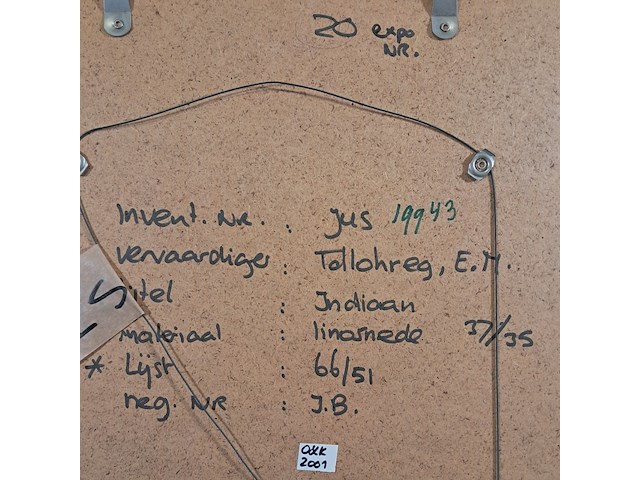 20 expo
NR.
Invent. NR. : jus 19943
vervaardiger : Tollohreg, E.M.
itel : Indiaan
materiaal : linosnede 37/35
* Lijst : 66/51
neg. NR : J.B.
O&K
2001